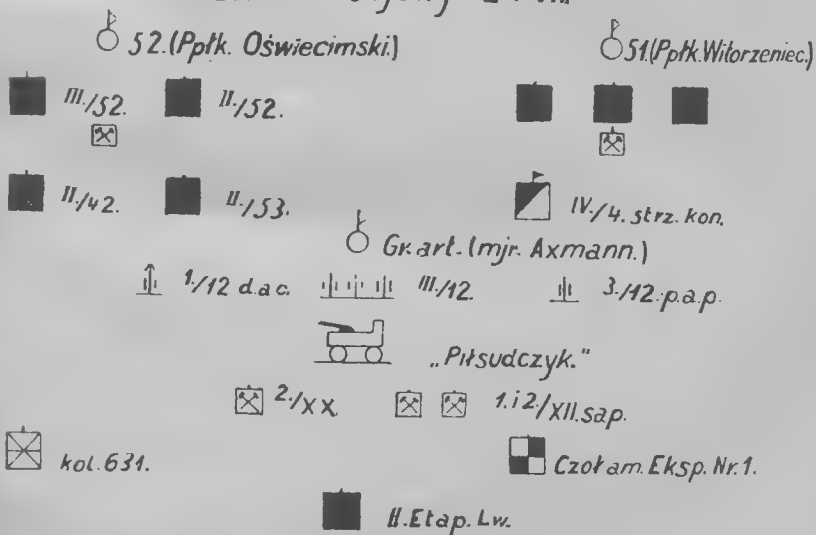 52.(Ppłk. Oświecimski.) 51.(Ppłk.Witorzeniec.)
III./52. II./52.
II./42. II./53. IV./4. strz. kon.
Gr. art. (mjr. Axmann.)
1./12 d.a.c. III./12. 3./12. p.a.p.
„Piłsudczyk."
2./XX. 1. i 2./XII. sap.
kol. 631. Czoł. am. Eksp. Nr. 1.
II. Etap. Lw.